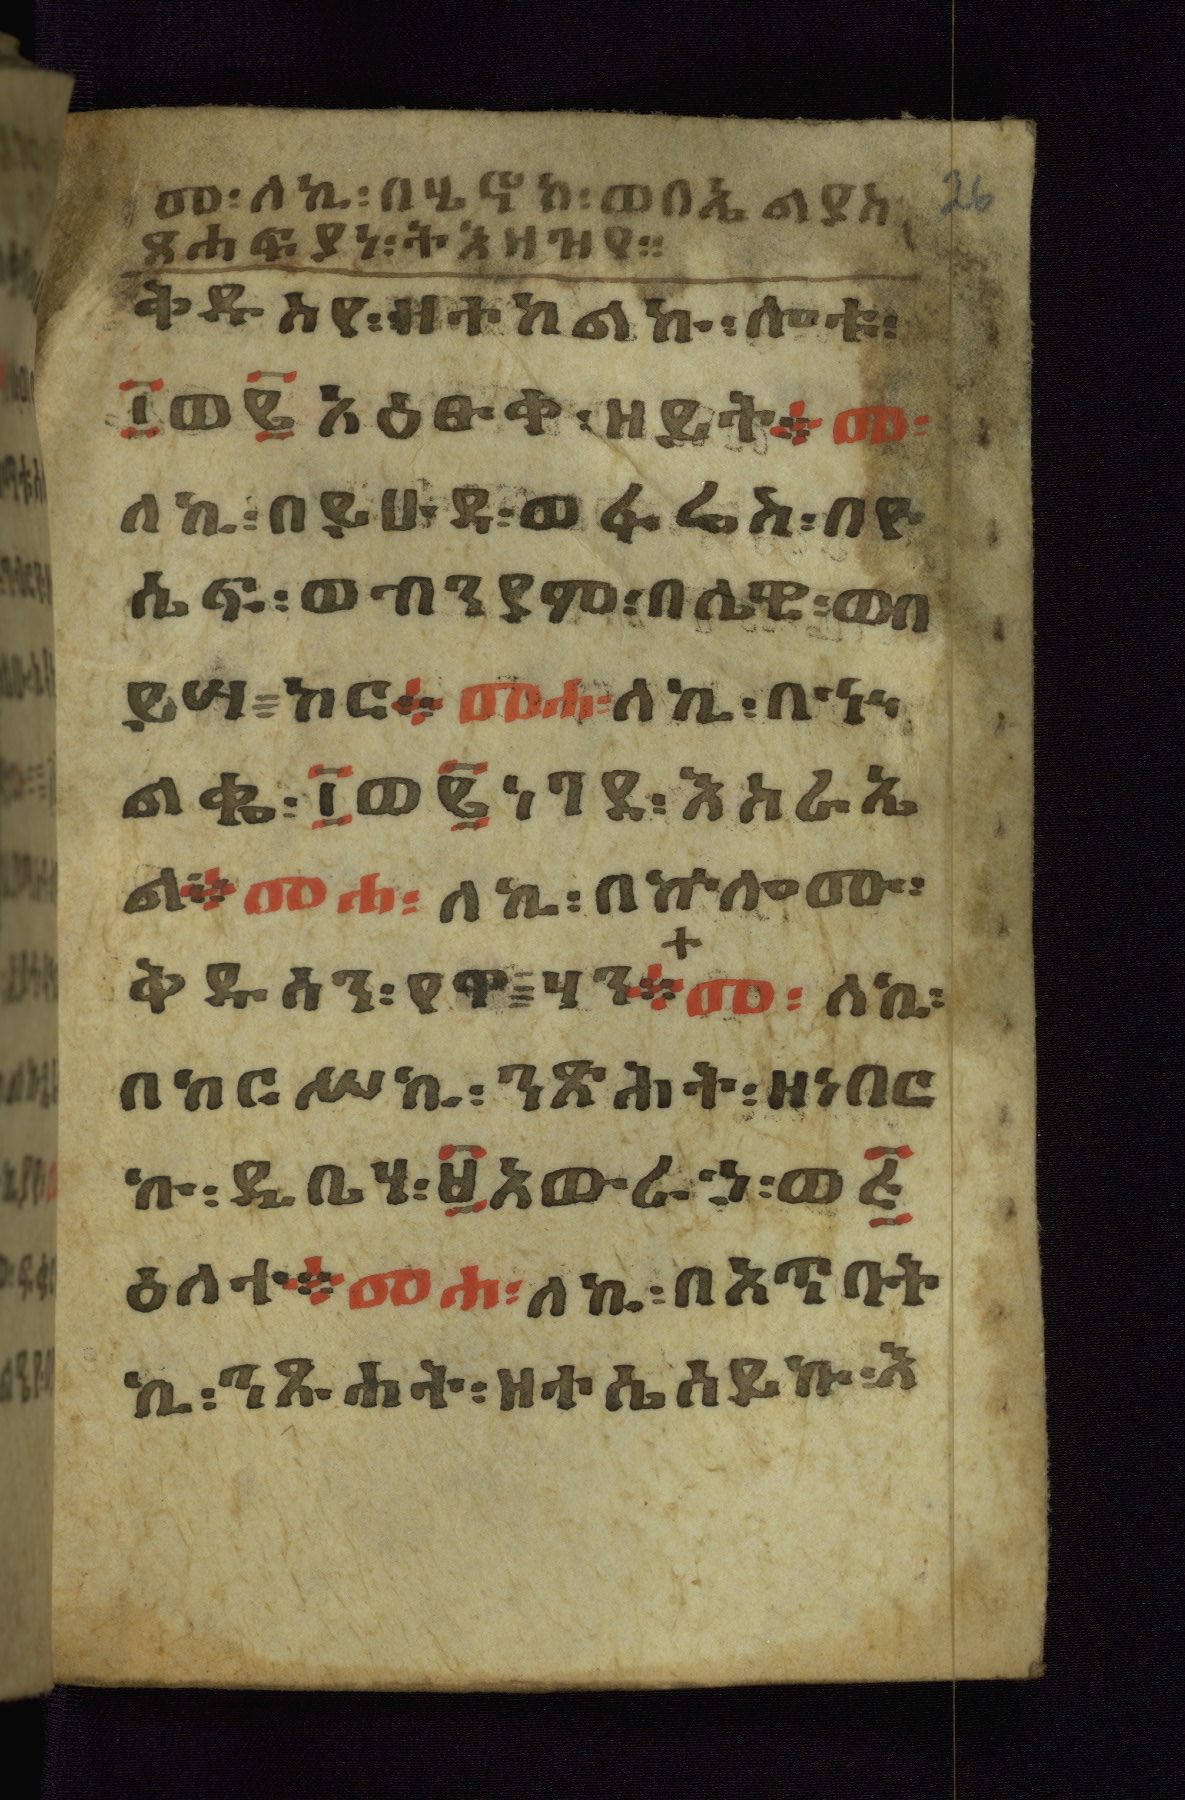 መ፡ለኪ፡በሄኖክ፡ወበኤልያስ
ጸሐፍያነ፡ትእዘዝየ።
ቅዱስየ፡ዘተከልኩ፡ሎቱ፡
፲ወ፪አዕፁቀ፡ዘይት፨መ፡
ለኪ፡በይሁዳ፡ወፋሬስ፡በዮ
ሴፍ፡ወብንያም፡በሌዊ፡ወበ
ይሣ፡ኮር፨መሐ፡ለኪ፡በኍ
ልቈ፡፲ወ፪ነገደ፡እስራኤ
ል፨መሐ፡ለኪ፡በኵሎሙ፡
ቅዱሳን፡የዋ፡ሃን፨መ፡ለኪ፡
በከርሥኪ፡ንጽሕት፡ዘነበር
ኩ፡ዲቤሃ፡፱አውራኀ፡ወ፭
ዕለተ፨መሐ፡ለኪ፡በአጥባት
ኪ፡ንጹሐት፡ዘተሴሰይኩ፡እ
26